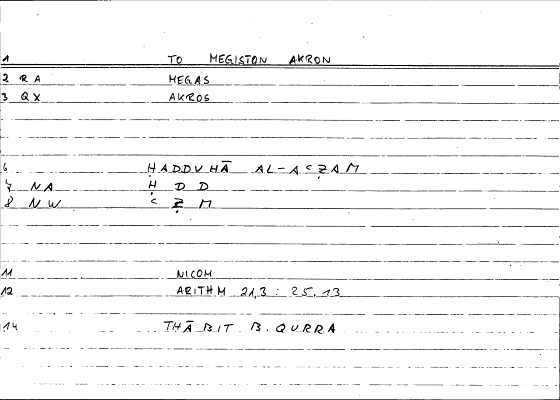 1 TO MEGISTON AKRON
2 RA MEGAS
3 QX AKROS
6 ḤADDUHĀ AL-ACẒAM
7 NA Ḥ D D
8 NW C Ẓ M
11 NICOM
12 ARITHM 21,3 : 25.13
14 THĀBIT B. QURRA